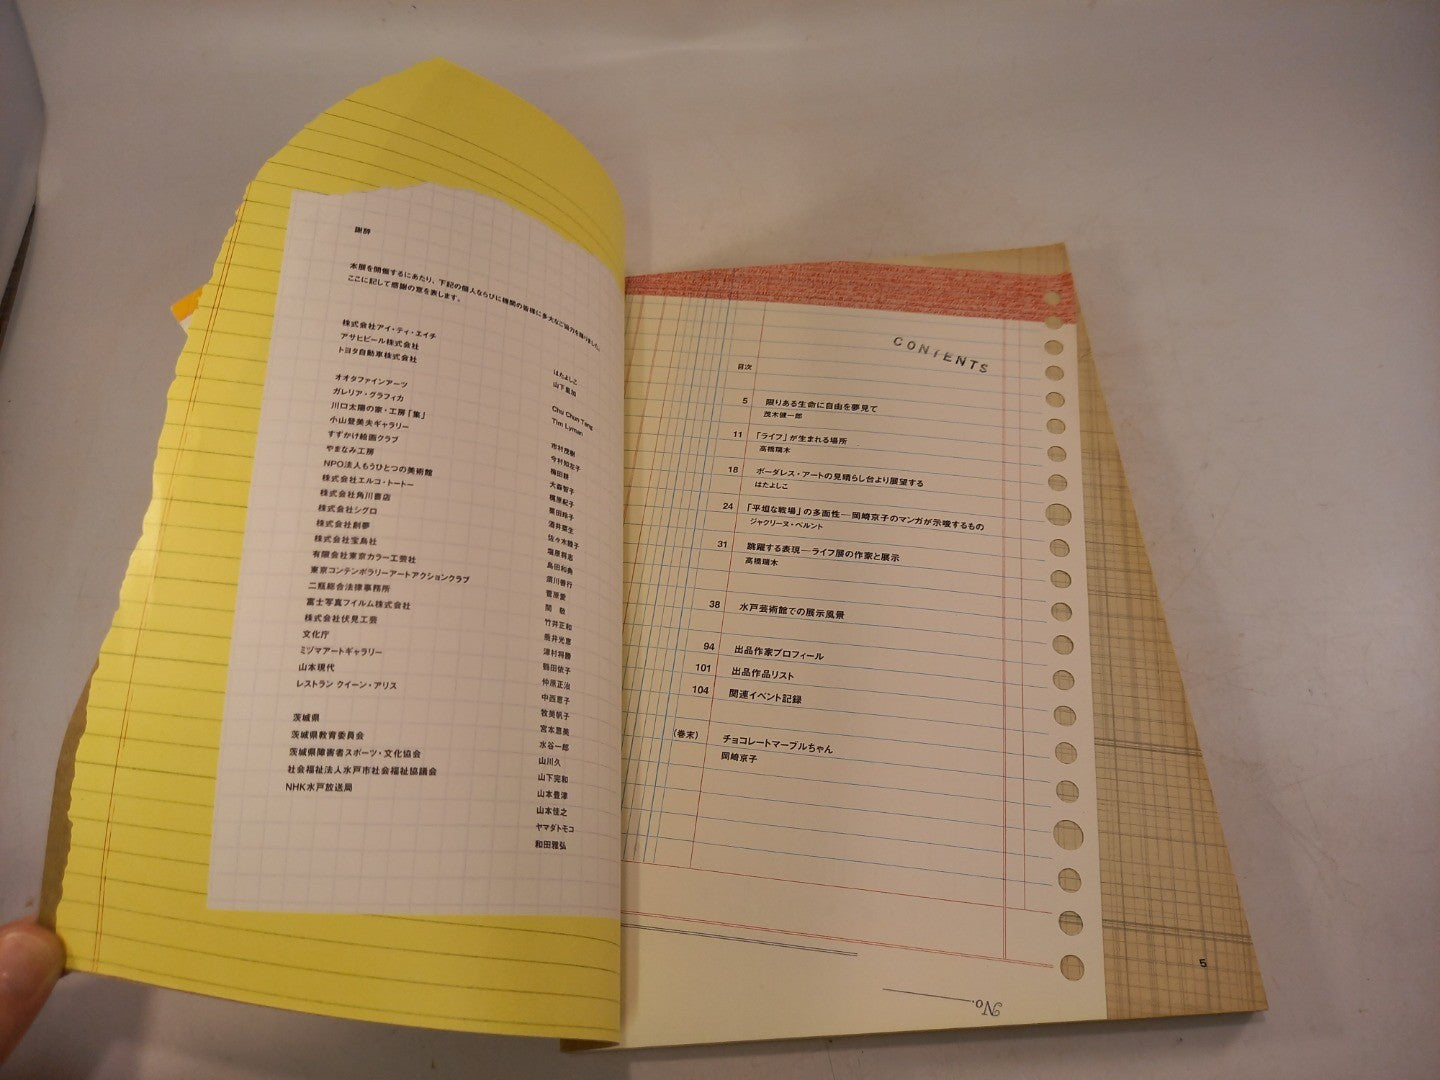 謝辞
本展を開催するにあたり、下記の個人ならびに機関の皆様に多大なご協力を賜りました。
ここに記して感謝の意を表します。
株式会社アイ・ティ・エイチ
アサヒビール株式会社
トヨタ自動車株式会社
オオタファインアーツ
ガレリア・グラフィカ
川口太陽の家・工房「集」
小山登美夫ギャラリー
すずかけ絵画クラブ
やまなみ工房
NPO法人もうひとつの美術館
株式会社エルコ・トートー
株式会社角川書店
株式会社シグロ
株式会社創夢
株式会社宝島社
有限会社東京カラー工芸社
東京コンテンポラリーアートアクションクラブ
二瓶総合法律事務所
富士写真フイルム株式会社
株式会社伏見工芸
文化庁
ミヅマアートギャラリー
山本現代
レストラン クイーン・アリス
茨城県
茨城県教育委員会
茨城県障害者スポーツ・文化協会
社会福祉法人水戸市社会福祉協議会
NHK水戸放送局
はたよしこ
山下里加
Chu Chun Teng
Tim Lyman
市村茂樹
今村知左子
梅田耕
大森智子
梶原紀子
粟田玲子
酒井翠生
佐々木睦子
塩原将志
島田和典
須川善行
菅原愛
関 敬
竹井正和
筒井光恵
津村将勝
鶴田依子
仲原正治
中西恵子
牧美帆子
宮本恵美
水谷一郎
山川久
山下完和
山本豊津
山本佳之
ヤマダトモコ
和田雅弘
CONTENTS
目次
5 限りある生命に自由を夢見て
茂木健一郎
11 「ライフ」が生まれる場所
高橋瑞木
18 ボーダレス・アートの見晴らし台より展望する
はたよしこ
24 「平坦な戦場」の多面性―岡崎京子のマンガが示唆するもの
ジャクリーヌ・ベルント
31 跳躍する表現―ライフ展の作家と展示
高橋瑞木
38 水戸芸術館での展示風景
94 出品作家プロフィール
101 出品作品リスト
104 関連イベント記録
(巻末) チョコレートマーブルちゃん
岡崎京子
No.
5